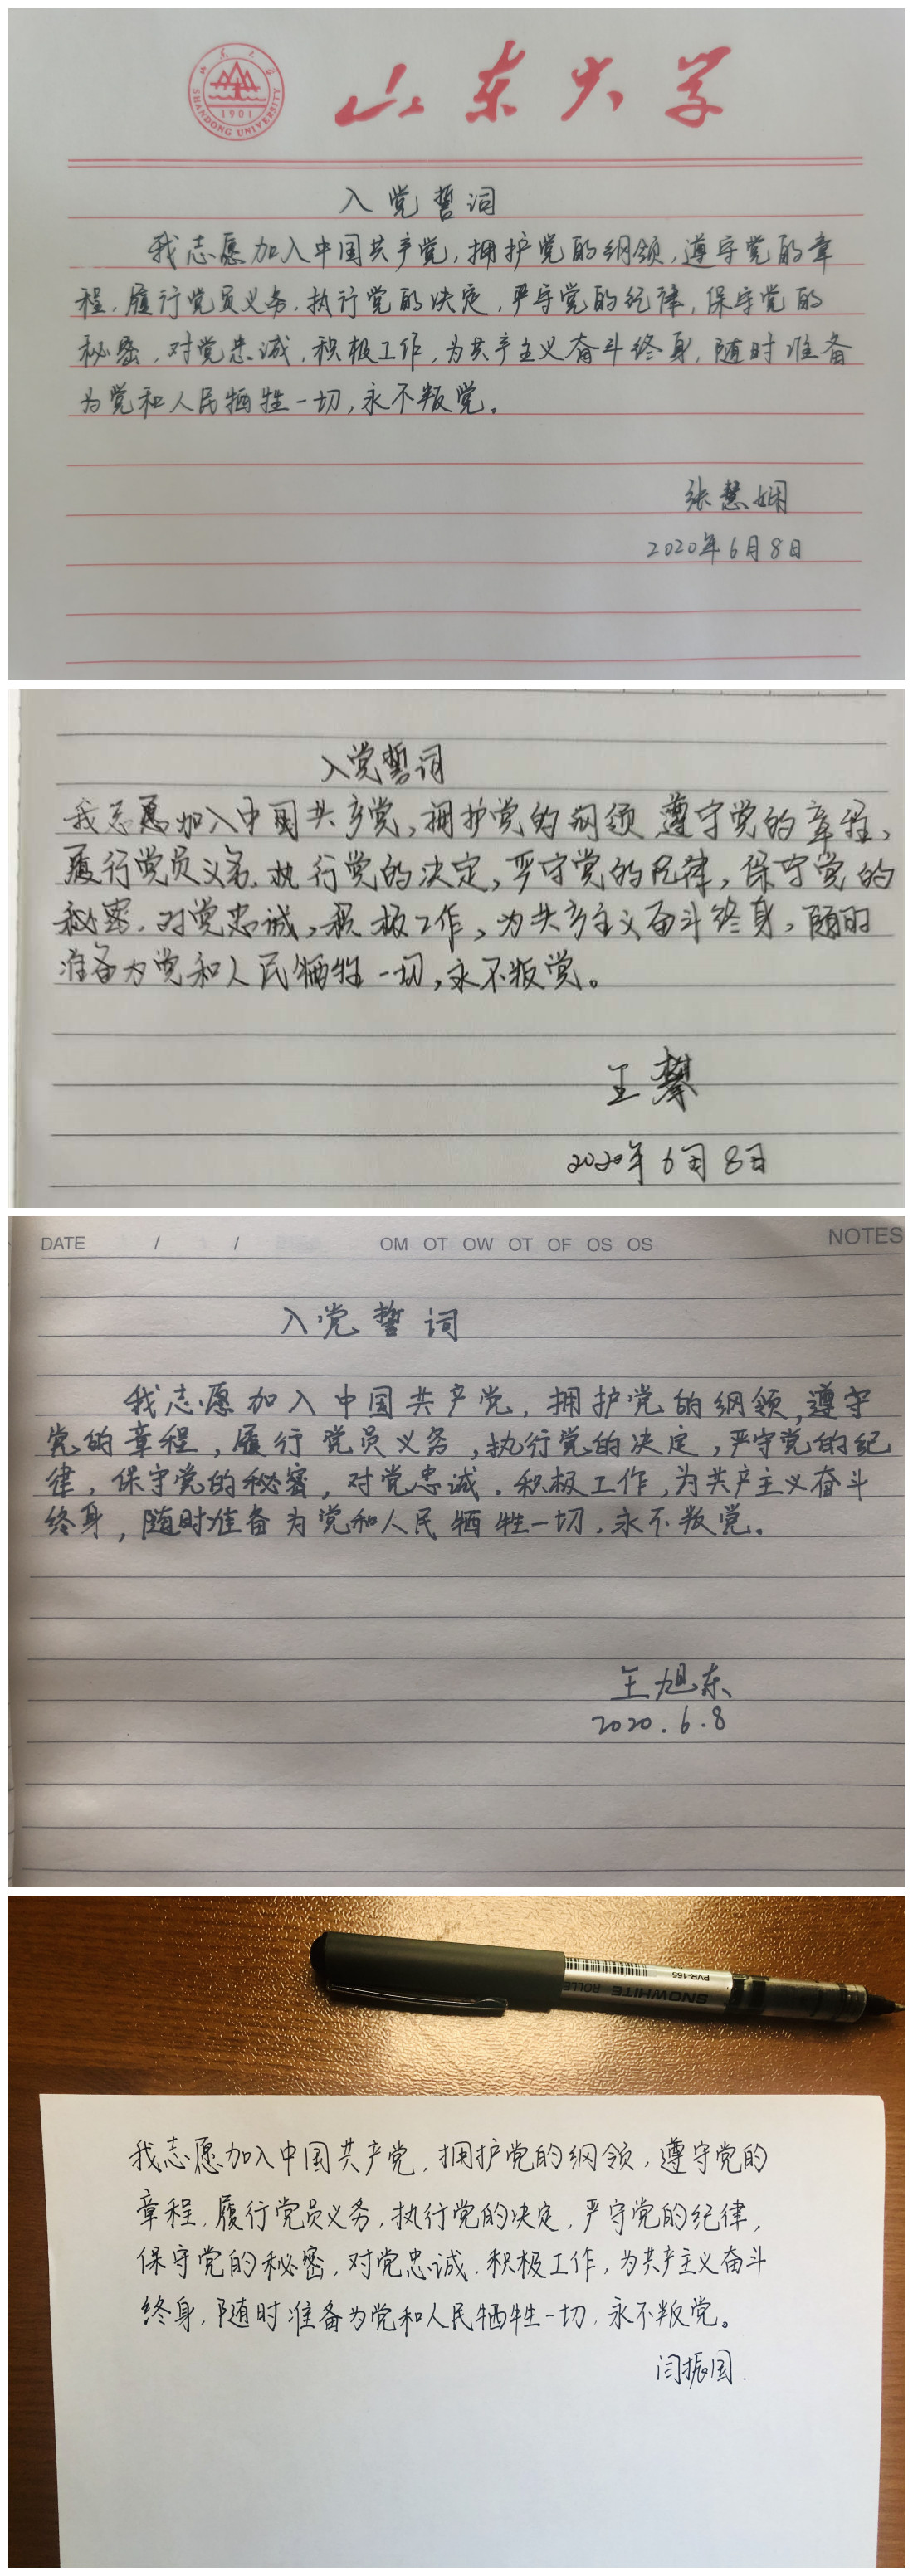 山东大学
SHANDONG UNIVERSITY
1901
入党誓词
我志愿加入中国共产党,拥护党的纲领,遵守党的章
程,履行党员义务,执行党的决定,严守党的纪律,保守党的
秘密,对党忠诚,积极工作,为共产主义奋斗终身,随时准备
为党和人民牺牲一切,永不叛党。
张慧娴
2020年6月8日
入党誓词
我志愿加入中国共产党,拥护党的纲领 遵守党的章程,
履行党员义务,执行党的决定,严守党的纪律,保守党的
秘密,对党忠诚,积极工作,为共产主义奋斗终身,随时
准备为党和人民牺牲一切,永不叛党。
王攀
2020年6月8日
DATE / / OM OT OW OT OF OS OS NOTES
入党誓词
我志愿加入中国共产党,拥护党的纲领,遵守
党的章程,履行党员义务,执行党的决定,严守党的纪
律,保守党的秘密,对党忠诚,积极工作,为共产主义奋斗
终身,随时准备为党和人民牺牲一切,永不叛党。
王旭东
2020.6.8
SNOWHITE ROLLE
PVR-155
我志愿加入中国共产党,拥护党的纲领,遵守党的
章程,履行党员义务,执行党的决定,严守党的纪律,
保守党的秘密,对党忠诚,积极工作,为共产主义奋斗
终身,随时准备为党和人民牺牲一切,永不叛党。
闫振国.